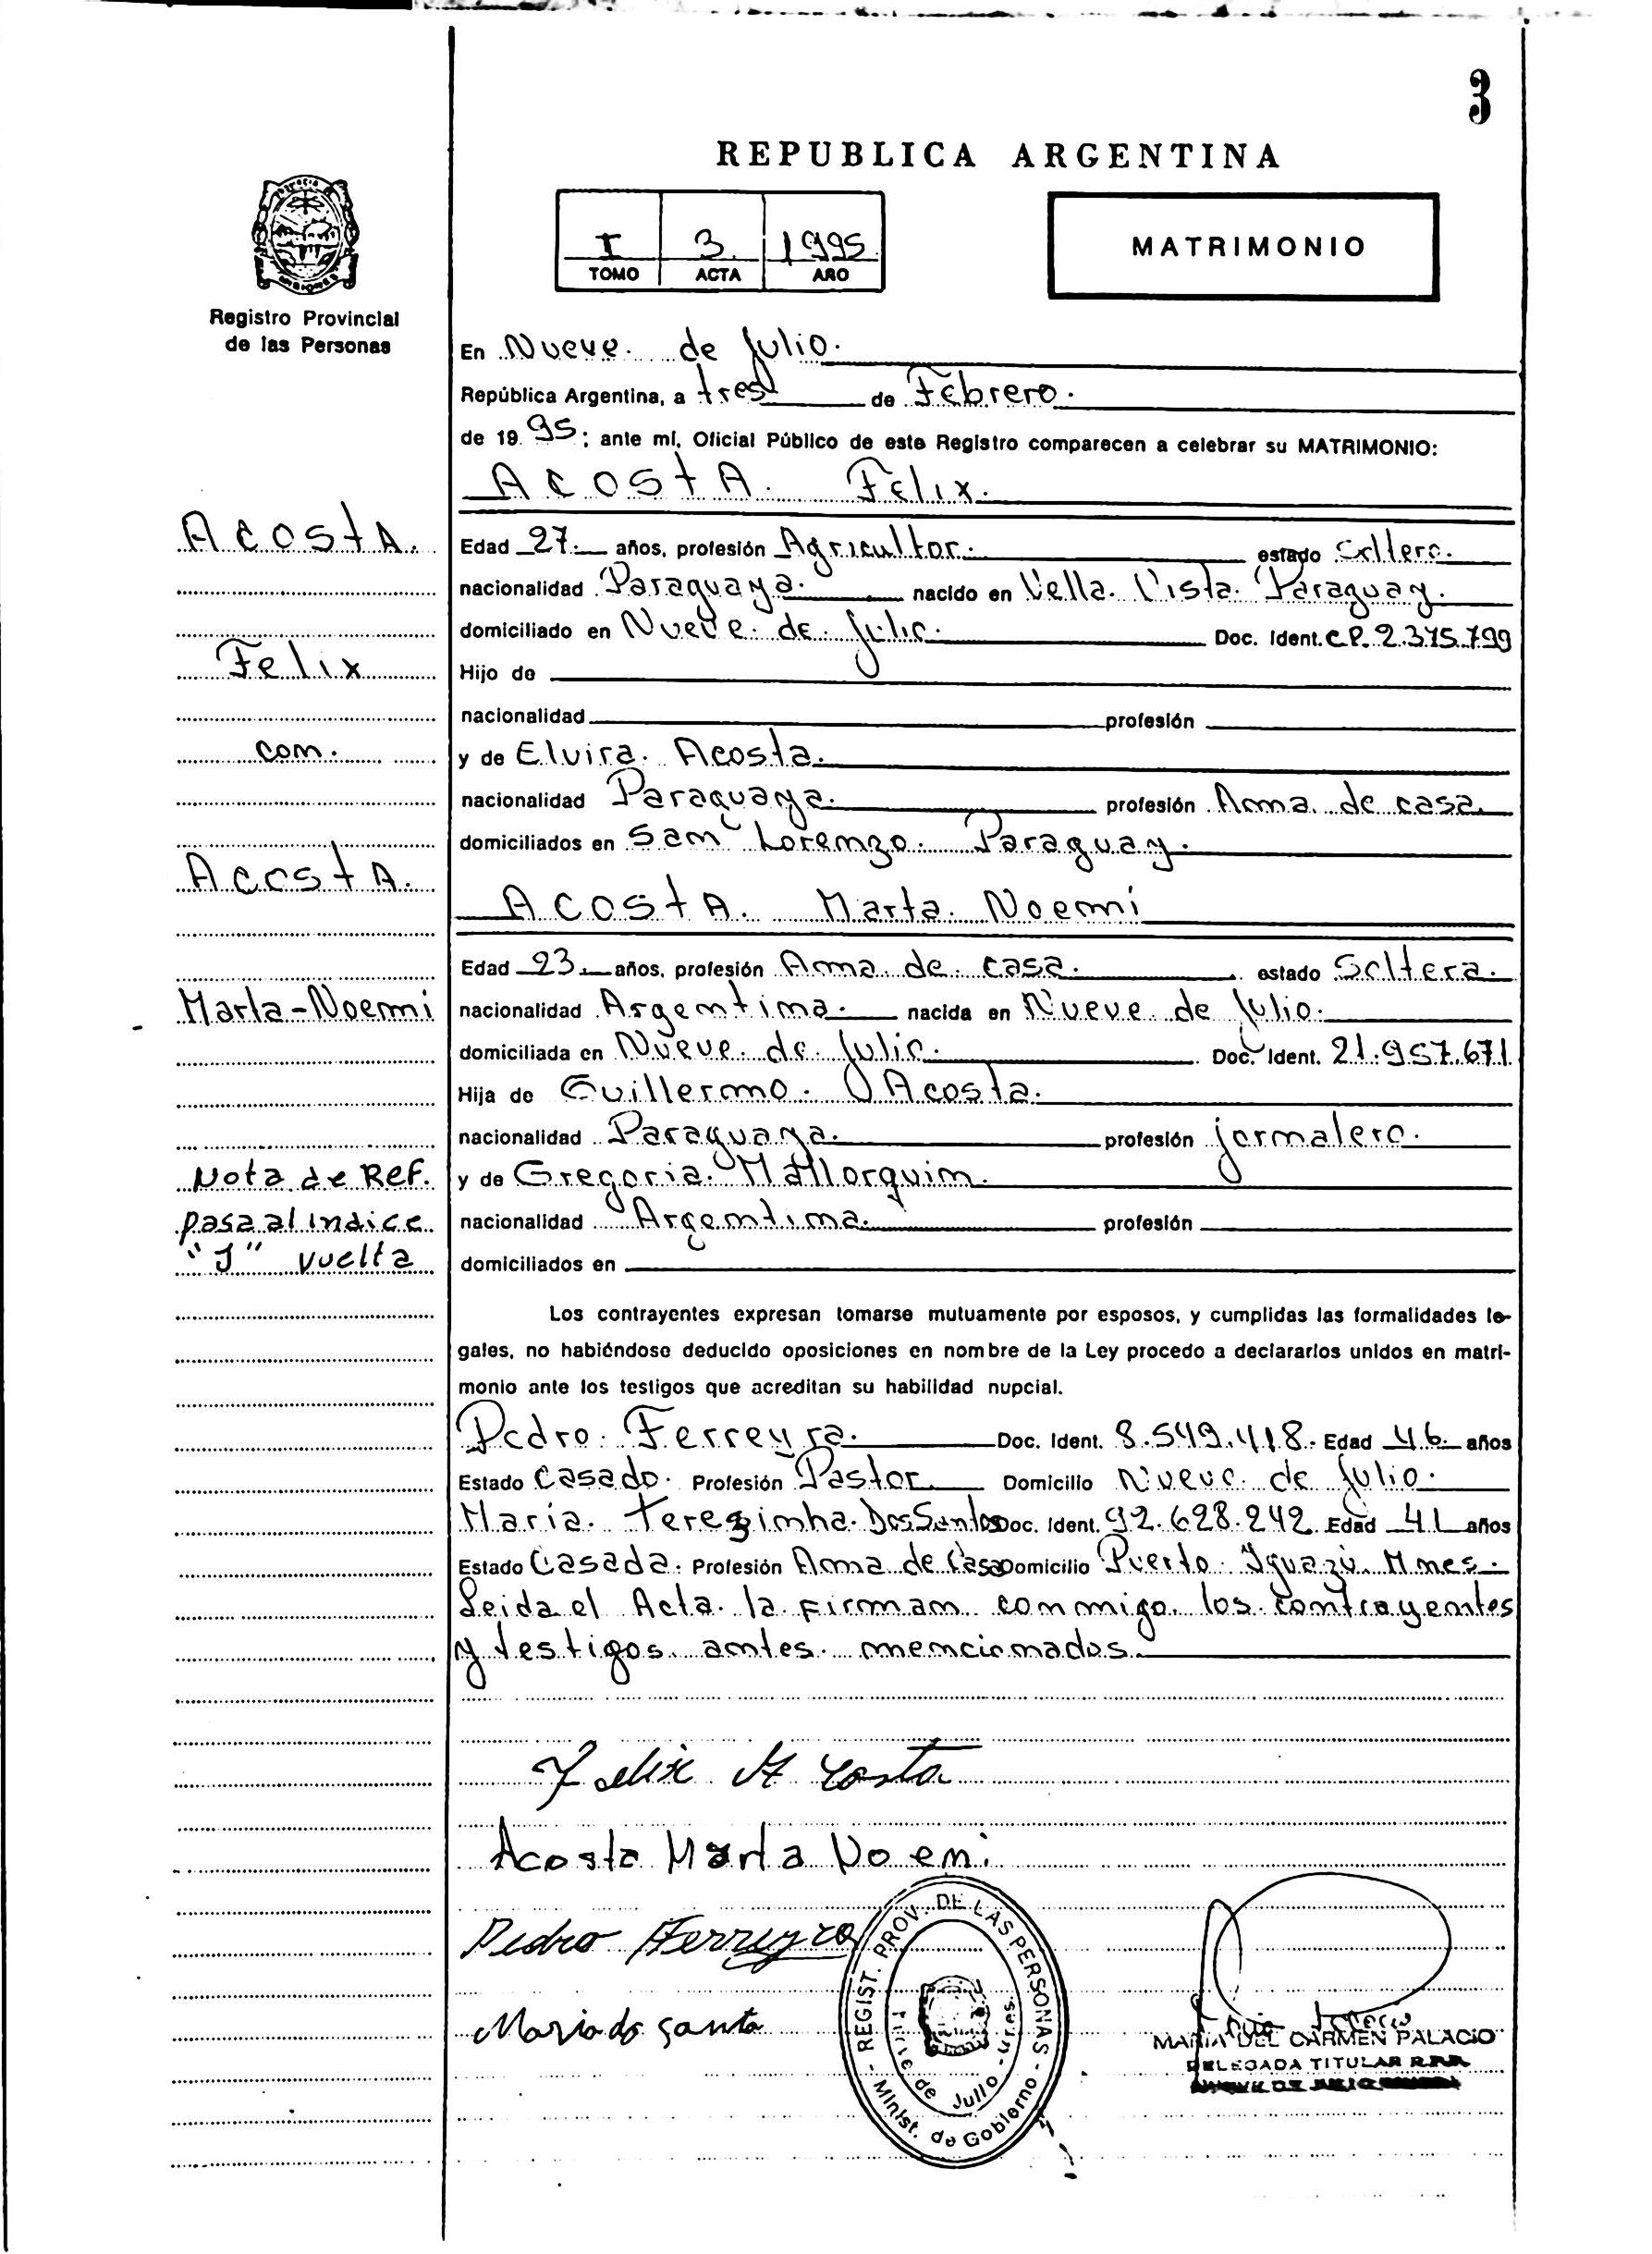 3
REPUBLICA ARGENTINA
I 3 1995
TOMO ACTA AÑO
MATRIMONIO
Registro Provincial
de las Personas
En Nueve de Julio.
República Argentina, a tres de Febrero.
de 19 95; ante mí, Oficial Público de este Registro comparecen a celebrar su MATRIMONIO:
ACOSTA. Felix.
Edad 27. años, profesión Agricultor. estado Soltero.
nacionalidad Paraguaya. nacido en Vella Vista. Paraguay.
domiciliado en Nueve de Julio. Doc. Ident. C.P. 2.375.799
Hijo de
nacionalidad profesión
y de Elvira. Acosta.
nacionalidad Paraguaya. profesión Ama de casa.
domiciliados en San Lorenzo. Paraguay.
ACOSTA. Marta. Noemi
Edad 23. años, profesión Ama de casa. estado Soltera.
nacionalidad Argentina. nacida en Nueve de Julio.
domiciliada en Nueve de Julio. Doc. Ident. 21.957.671
Hija de Guillermo. Acosta.
nacionalidad Paraguaya. profesión jornalero.
y de Gregoria. Mallorquin.
nacionalidad Argentina. profesión
domiciliados en
Los contrayentes expresan tomarse mutuamente por esposos, y cumplidas las formalidades le-
gales, no habiéndose deducido oposiciones en nombre de la Ley procedo a declararlos unidos en matri-
monio ante los testigos que acreditan su habilidad nupcial.
Pedro. Ferreyra. Doc. Ident. 8.549.418. Edad 46 años
Estado Casado. Profesión Pastor. Domicilio Nueve de Julio.
Maria. Terezinha. Dos Santos Doc. Ident. 92.628.242 Edad 41 años
Estado Casada. Profesión Ama de Casa Domicilio Puerto Iguazú. Mnes.
Leida el Acta. la firman conmigo los contrayentes
y testigos antes mencionados.
Felix Acosta
Acosta Marta Noemi
Pedro Ferreyra
Maria do santo
REGIST. PROV. DE LAS PERSONAS - Minist. de Gobierno -
de Julio
MARIA DEL CARMEN PALACIO
DELEGADA TITULAR
ACOSTA.
Felix
con.
ACOSTA.
Marta-Noemi
Nota de Ref.
pasa al indice
"J" vuelta